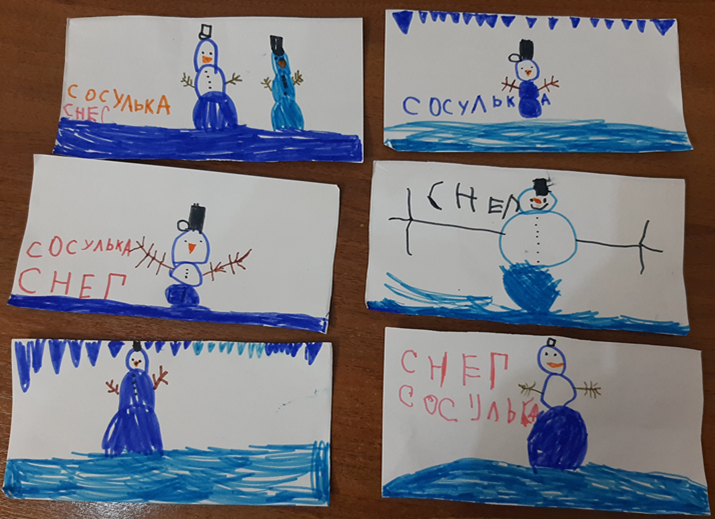 СОСУЛЬКА
СНЕГ
СОСУЛЬКА
СОСУЛЬКА
СНЕГ
СНЕГ
СНЕГ
СОСУЛЬКА